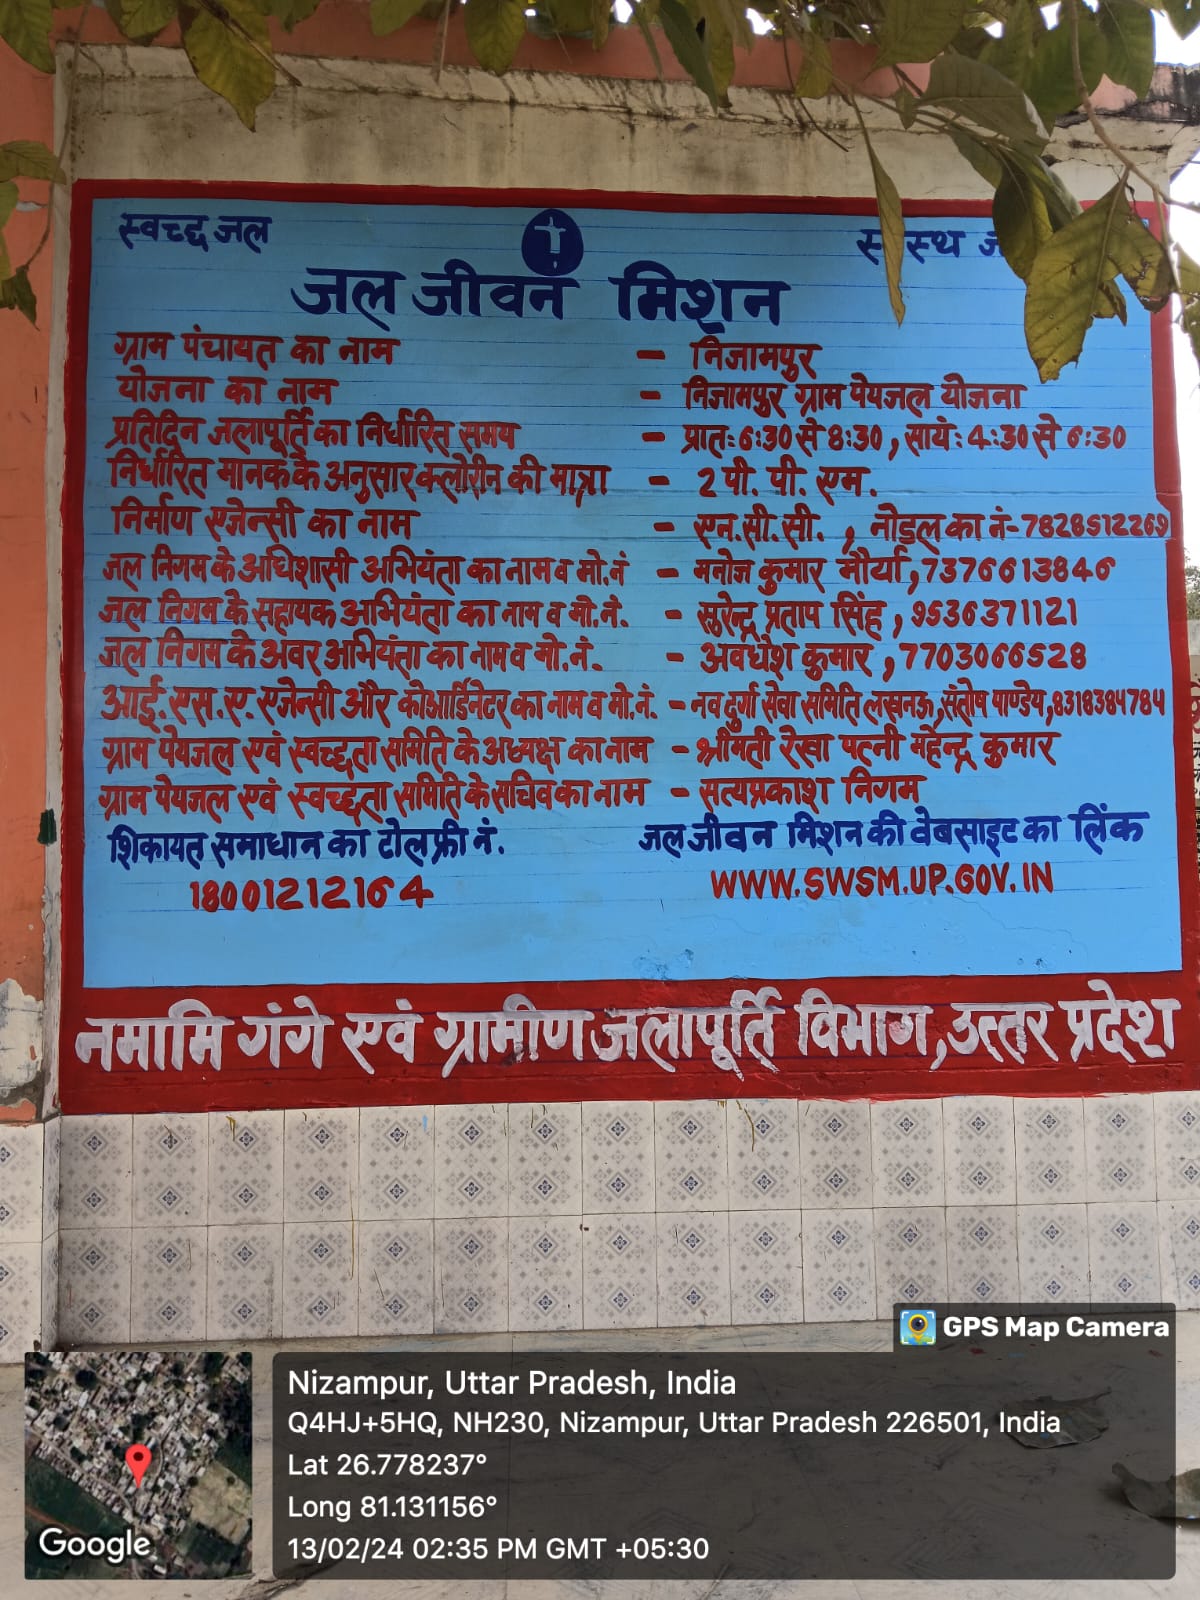 स्वच्छ जल
जल जीवन मिशन
ग्राम पंचायत का नाम - निजामपुर
योजना का नाम - निजामपुर ग्राम पेयजल योजना
प्रतिदिन जलापूर्ति का निर्धारित समय - प्रातः 6:30 से 8:30, सायं: 4:30 से 6:30
निर्धारित मानक के अनुसार क्लोरीन की मात्रा - 2 पी. पी. एम.
निर्माण एजेन्सी का नाम - एन.सी.सी., नोडल का नं-7828512269
जल निगम के अधिशासी अभियंता का नाम व मो.नं - मनोज कुमार मौर्या, 7376613846
जल निगम के सहायक अभियंता का नाम व मो.नं. - सुरेन्द्र प्रताप सिंह, 9536371121
जल निगम के अवर अभियंता का नाम व मो.नं. - अवधेश कुमार, 7703066528
आई.एस.ए. एजेन्सी और कोआर्डिनेटर का नाम व मो.नं. - नव दुर्गा सेवा समिति लखनऊ, संतोष पाण्डेय, 8318384784
ग्राम पेयजल एवं स्वच्छता समिति के अध्यक्ष का नाम - श्रीमती रेखा पत्नी महेन्द्र कुमार
ग्राम पेयजल एवं स्वच्छता समिति के सचिव का नाम - सत्यप्रकाश निगम
शिकायत समाधान का टोल फ्री नं. जल जीवन मिशन की वेबसाइट का लिंक
18001212164 WWW.SWSM.UP.GOV.IN
नमामि गंगे एवं ग्रामीण जलापूर्ति विभाग, उत्तर प्रदेश
GPS Map Camera
Nizampur, Uttar Pradesh, India
Q4HJ+5HQ, NH230, Nizampur, Uttar Pradesh 226501, India
Lat 26.778237°
Long 81.131156°
13/02/24 02:35 PM GMT +05:30
Google